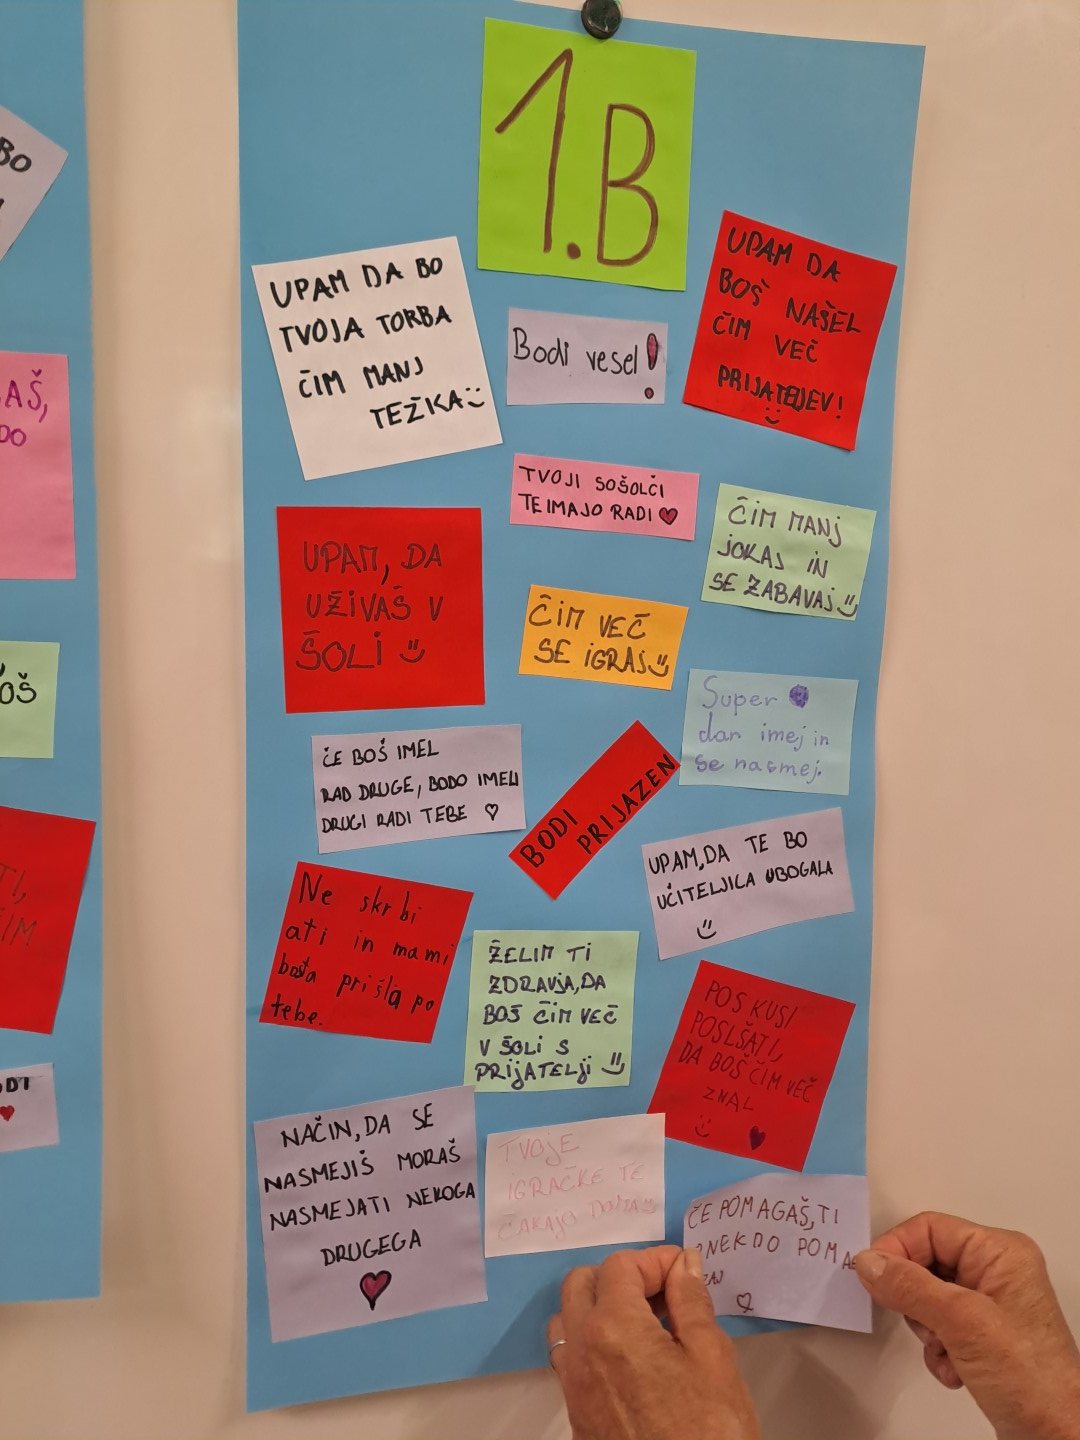 1.B
UPAM DA BO
TVOJA TORBA
ČIM MANJ
TEŽKA
Bodi vesel!
UPAM DA
BOŠ NAŠEL
ČIM VEČ
PRIJATELJEV!
TVOJI SOŠOLCI
TE IMAJO RADI
ČIM MANJ
JOKAJ IN
SE ZABAVAJ
UPAM, DA
UŽIVAŠ V
ŠOLI
ČIM VEČ
SE IGRAJ
Super
dan imej in
se nasmej.
ČE BOŠ IMEL
RAD DRUGE, BODO IMELI
DRUGI RADI TEBE
BODI
PRIJAZEN
UPAM, DA TE BO
UČITELJICA UBOGALA
Ne skrbi
ati in mami
bosta prišla po
tebe.
ŽELIM TI
ZDRAVJA, DA
BOŠ ČIM VEČ
V ŠOLI S
PRIJATELJI
POSKUSI
POSLŠATI,
DA BOŠ ČIM VEČ
ZNAL
NAČIN, DA SE
NASMEJIŠ MORAŠ
NASMEJATI NEKOGA
DRUGEGA
TVOJE
IGRAČKE TE
ČAKAJO DOMA
ČE POMAGAŠ, TI
NEKDO POMA
ZAJ
BO
AŠ,
DO
OŠ
TI,
ČIM